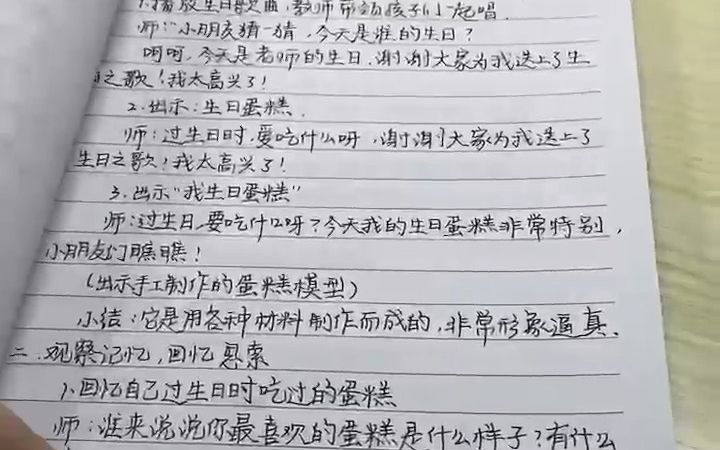 1.播放生日歌曲,教师带领孩子们一起唱.
师:"小朋友猜一猜,今天是谁的生日?
呵呵,今天是老师的生日.谢谢大家为我送上了生
日之歌!我太高兴了!
2.出示:生日蛋糕.
师:过生日时,要吃什么呀,谢谢大家为我送上了
生日之歌!我太高兴了!
3.出示"我生日蛋糕"
师:过生日,要吃什么呀?今天我的生日蛋糕非常特别,
小朋友们瞧瞧!
(出示手工制作的蛋糕模型)
小结:它是用各种材料制作而成的,非常形象逼真.
二.观察记忆,回忆思索
1.回忆自己过生日时吃过的蛋糕
师:谁来说说你最喜欢的蛋糕是什么样子?有什么